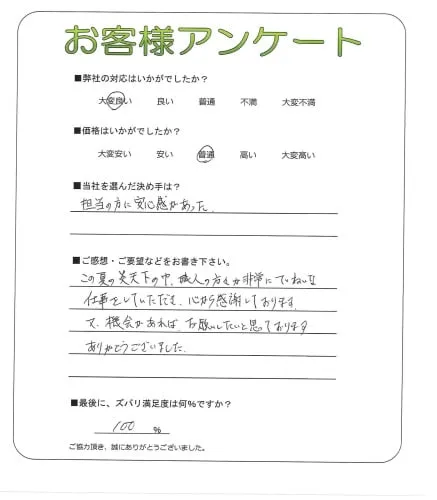 お客様アンケート
■弊社の対応はいかがでしたか？
大変良い 良い 普通 不満 大変不満
■価格はいかがでしたか？
大変安い 安い 普通 高い 大変高い
■当社を選んだ決め手は？
担当の方に安心感があった
■ご感想・ご要望などをお書き下さい。
この夏の炎天下の中、職人の方も非常にていねいな
仕事をしていただき、心から感謝しております
機会があれば、お願いしたいと思っております
ありがとうございました
■最後に、ズバリ満足度は何%ですか？
100 %
ご協力頂き、誠にありがとうございました。